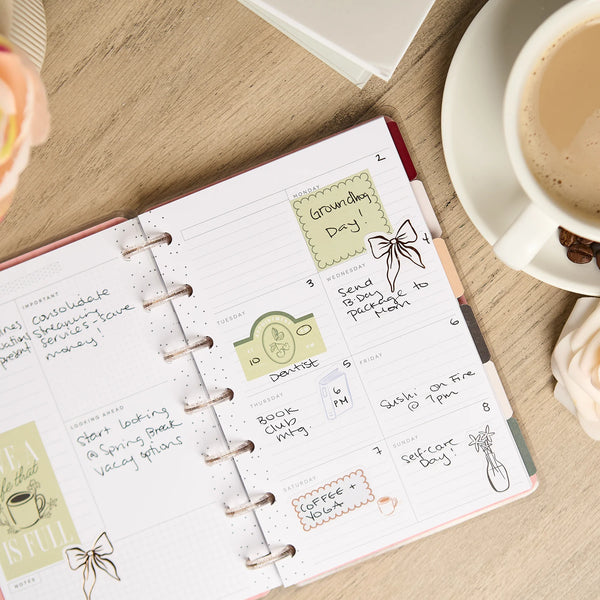 IMPORTANT
consolidate
streaming
services - save
money
LOOKING AHEAD
start looking
@ Spring Break
vacay options
IS FULL
NOTES
MONDAY
2
Groundhog
Day!
TUESDAY
3
10 00
Dentist
WEDNESDAY
4
Send
B-Day
package to
Mom
THURSDAY
5
Book
club
mtg
6
PM
FRIDAY
6
Sushi on Fire
@ 7pm
SATURDAY
7
COFFEE +
YOGA
SUNDAY
8
Self-care
Day!